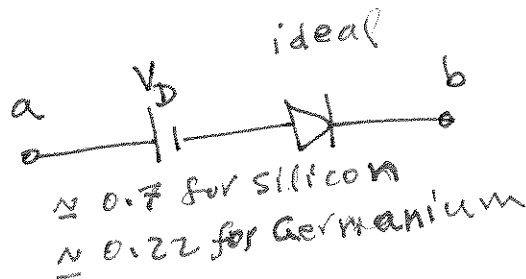 ideal
V_D
a
b
≃ 0.7 for silicon
≃ 0.22 for Germanium